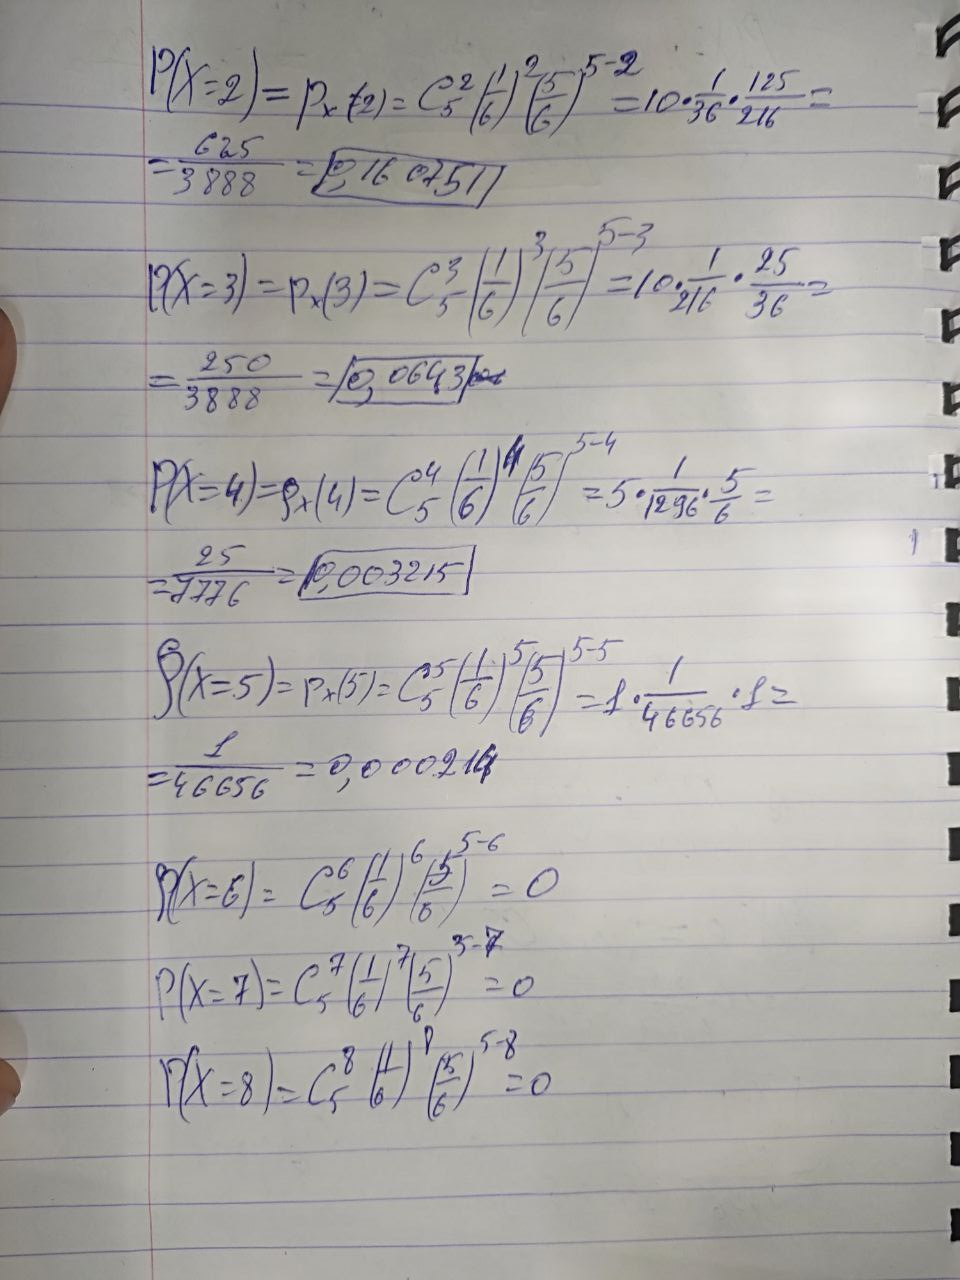 P(X=2) = pₓ(2) = C₅²(1/6)²(5/6)⁵⁻² = 10·1/36·125/216 =
= 625/3888 = 0,160751
P(X=3) = pₓ(3) = C₅³(1/6)³(5/6)⁵⁻³ = 10·1/216·25/36 =
= 250/3888 = 0,0643
P(X=4) = pₓ(4) = C₅⁴(1/6)⁴(5/6)⁵⁻⁴ = 5·1/1296·5/6 =
= 25/7776 = 0,003215
P(X=5) = pₓ(5) = C₅⁵(1/6)⁵(5/6)⁵⁻⁵ = 1·1/46656·1 =
= 1/46656 = 0,000214
P(X=6) = C₅⁶(1/6)⁶(5/6)⁵⁻⁶ = 0
P(X=7) = C₅⁷(1/6)⁷(5/6)⁵⁻⁷ = 0
P(X=8) = C₅⁸(1/6)⁸(5/6)⁵⁻⁸ = 0